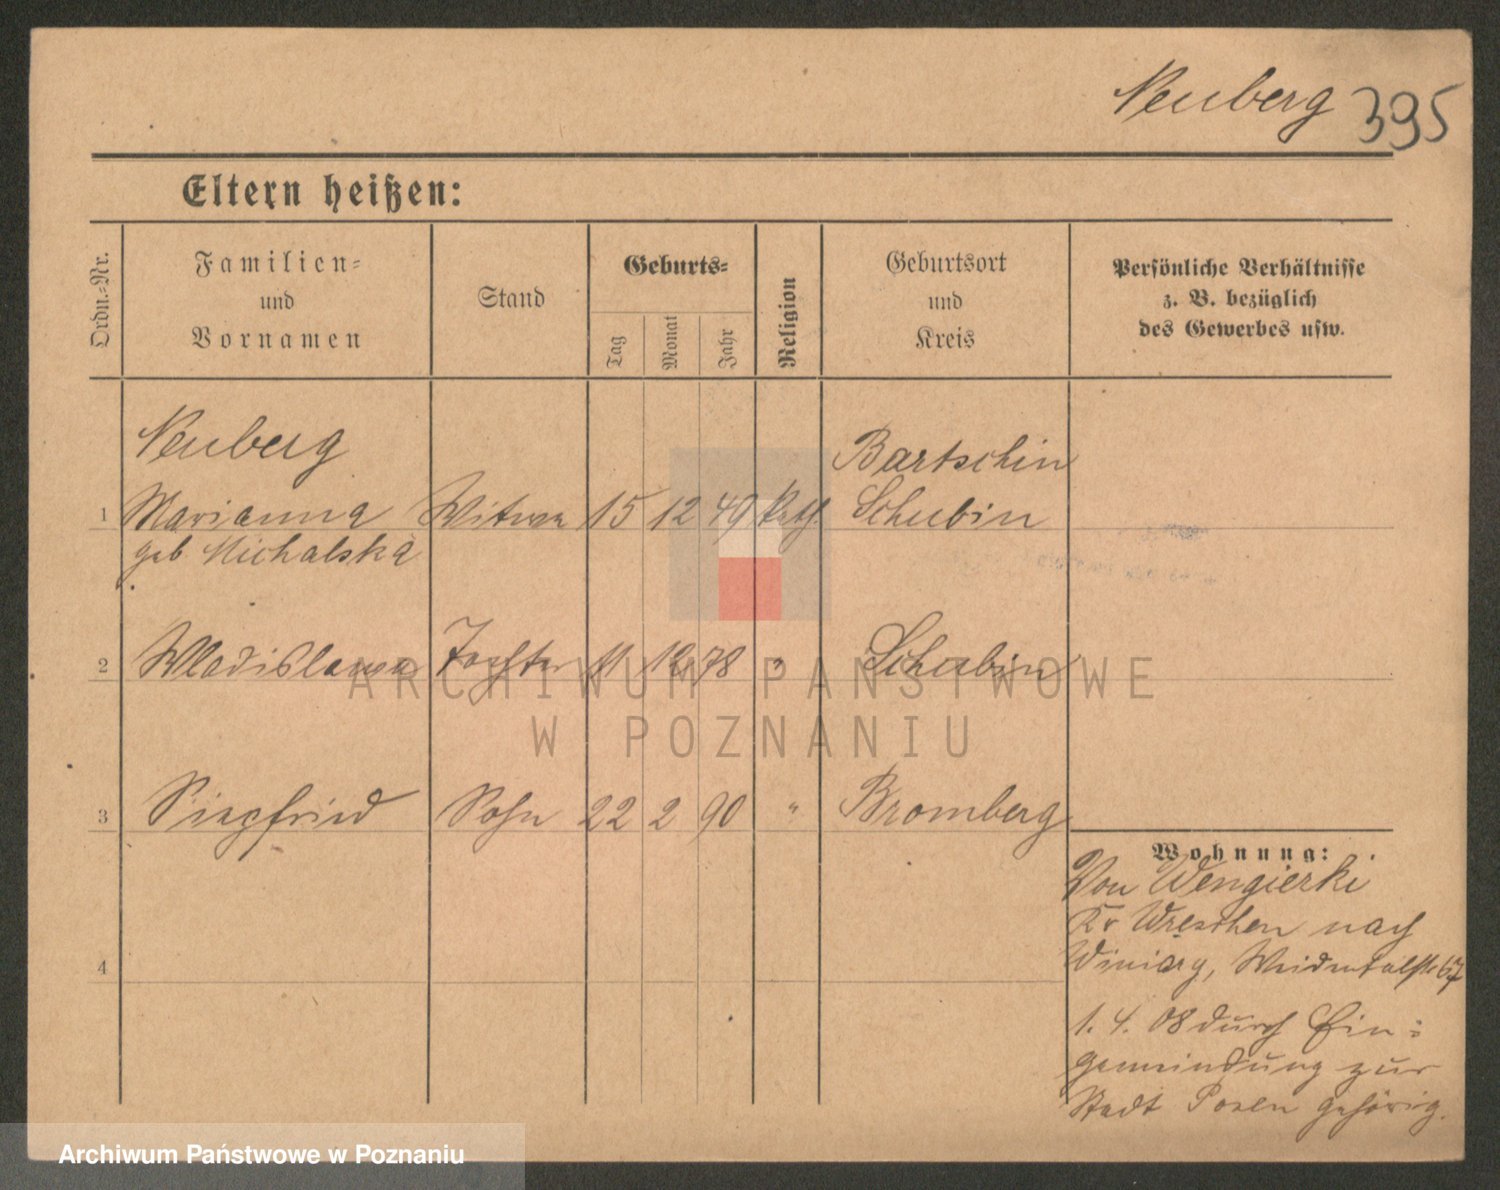 Neuberg 395
Eltern heißen:
Ordn.-Nr.
Familien-
und
Vornamen
Stand
Geburts-
Tag
Monat
Jahr
Religion
Geburtsort
und
Kreis
Persönliche Verhältnisse
z. B. bezüglich
des Gewerbes usw.
Neuberg Bartschin
1 Marianna Witwe 15 12 49 kath Schubin
geb Michalska
2 Wladislawa Tochter 11 12 78 " Schubin
3 Siegfried Sohn 22 2 90 " Bromberg
4
Wohnung:
Von Wengierki
Kr Wreschen nach
Winiary, 67
1. 4. 08 durch Ein-
gemeindung zur
Stadt Posen gehörig.
ARCHIWUM PAŃSTWOWE
W POZNANIU
Archiwum Państwowe w Poznaniu